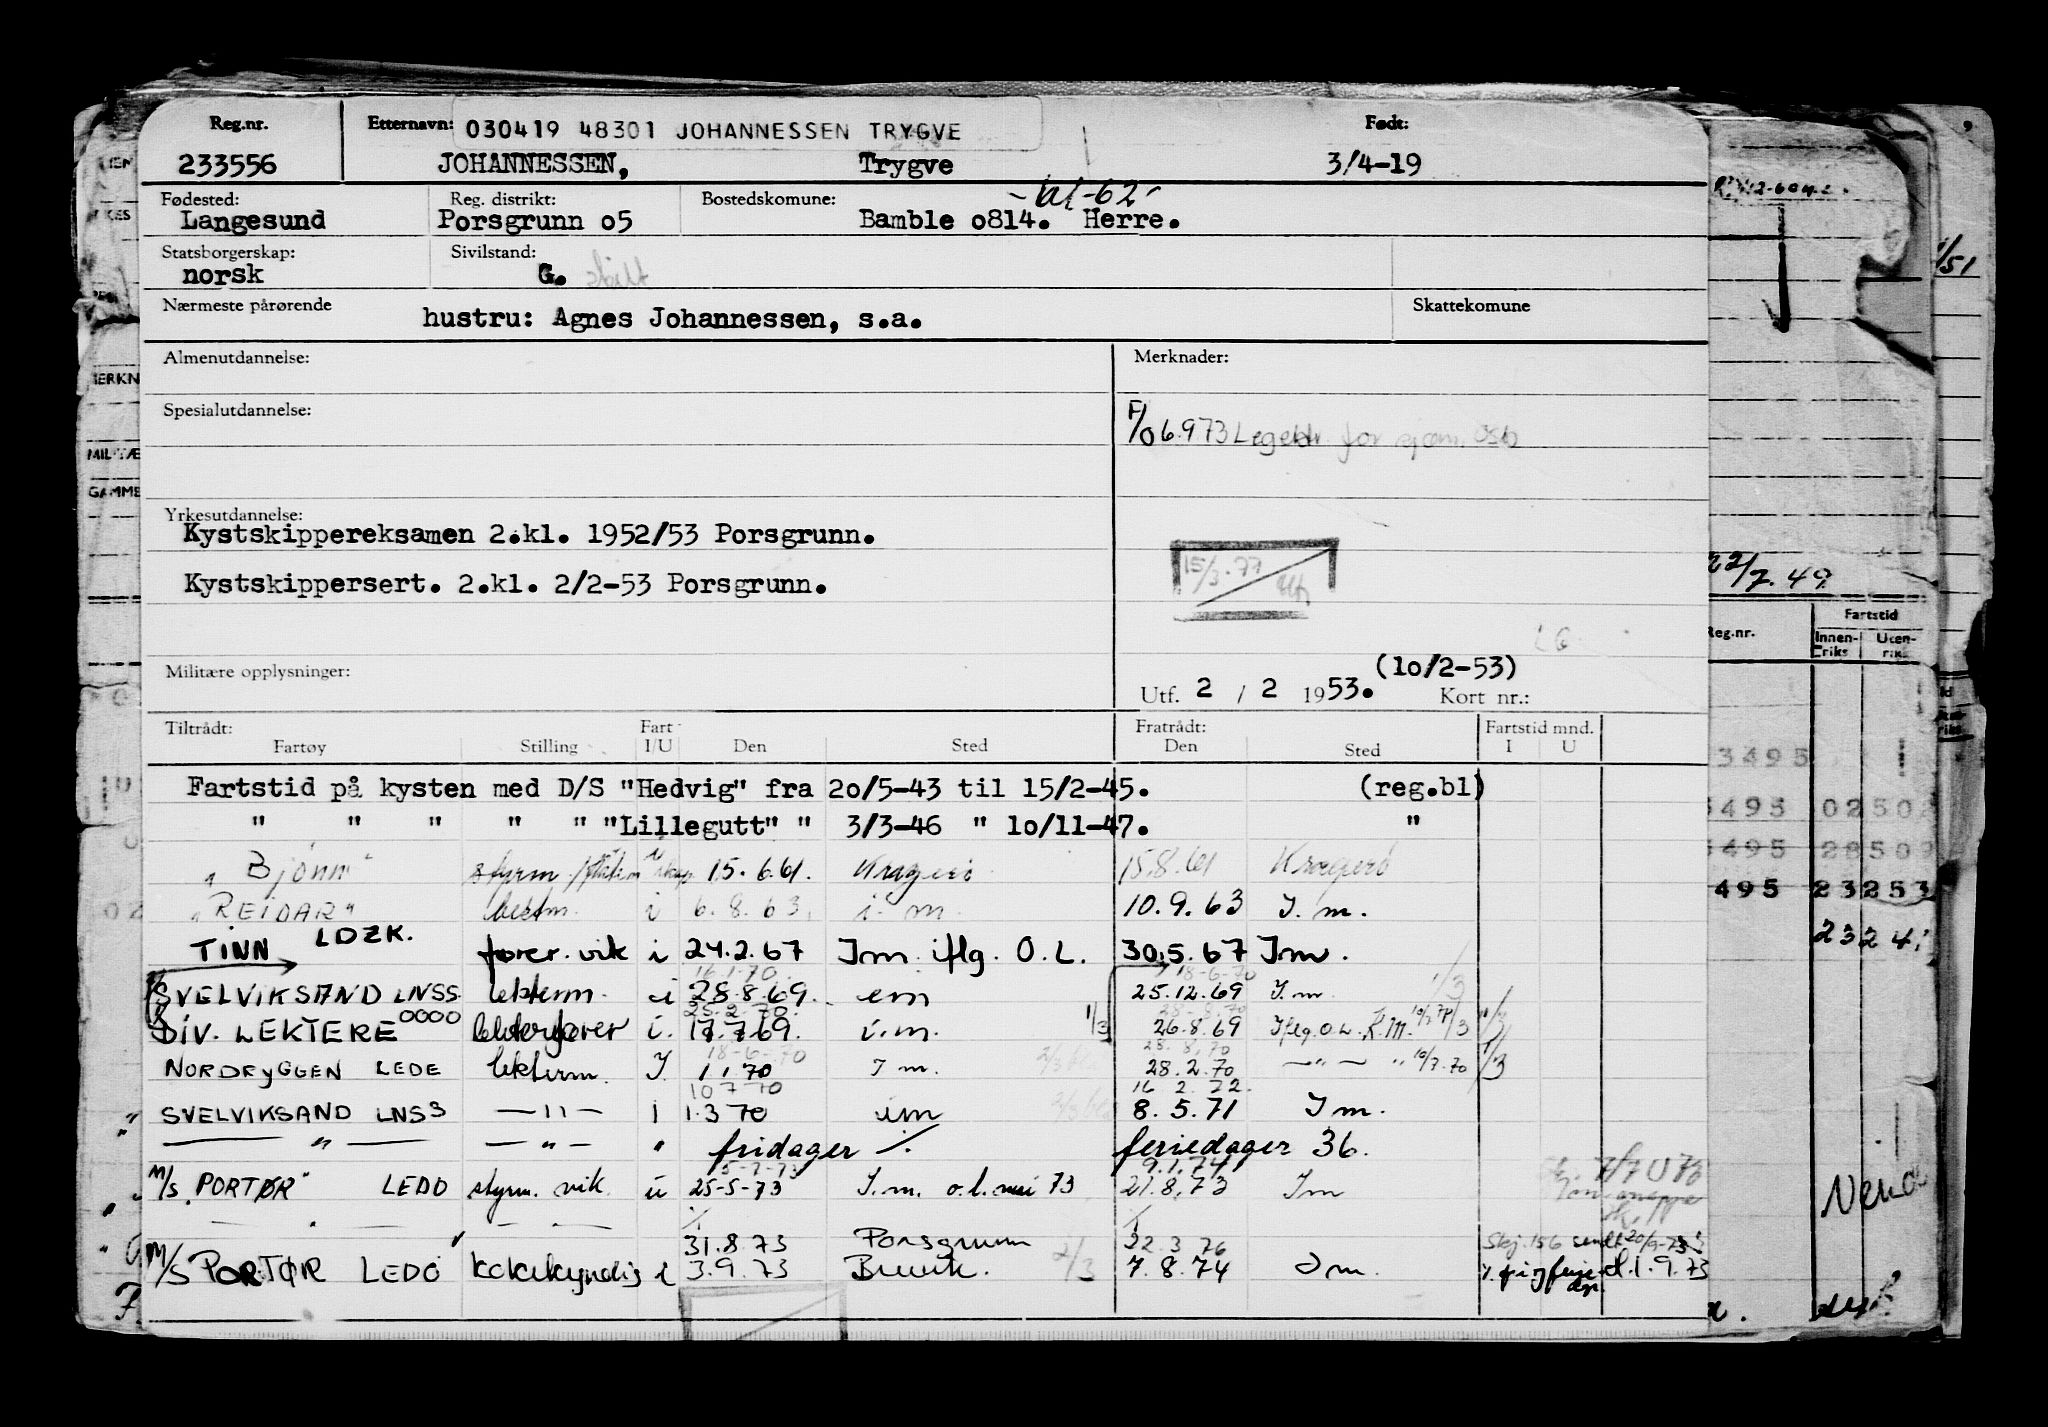 Reg.nr. Etternavn: 030419 48301 JOHANNESSEN TRYGVE Født:
233556 JOHANNESSEN, Trygve 3/4-19
Fødested: Reg. distrikt: Bostedskomune: -bl-62-
Langesund Porsgrunn o5 Bamble o814. Herre.
Statsborgerskap: Sivilstand:
norsk G. skilt
Nærmeste pårørende Skattekomune
hustru: Agnes Johannessen, s.a.
Almenutdannelse: Merknader:
Spesialutdannelse:
F/O 6.973 Legektr. for sjøm. Oslo
Yrkesutdannelse:
Kystskippereksamen 2.kl. 1952/53 Porsgrunn.
15/3.77
Kystskippersert. 2.kl. 2/2-53 Porsgrunn.
Militære opplysninger: (lo/2-53)
Utf. 2 / 2 1953. Kort nr.:
Tiltrådt: Fart Fratrådt: Fartstid mnd.
Fartøy Stilling I/U Den Sted Den Sted I U
Fartstid på kysten med D/S "Hedvig" fra 2o/5-43 til 15/2-45. (reg.bl)
" " " " " "Lillegutt" " 3/3-46 " lo/11-47. "
"Bjønn" styrm. 15.6.61. Kragerø 15.8.61 Kragerø
"REIDAR" bestm. i 6.8.63. i.m. 10.9.63 I.m.
TINN LDZK. fører.vik i 24.2.67 Im iflg. O.L. 30.5.67 Im.
16.1.70. 18-6-70
SVELVIKSAND LNSS lekterm. i 28.8.69. em 25.12.69 I.m. 1/3
25.2.70. 28-8.70
DIV. LEKTERE 0000 lekterfører i. 17.7.69. i.m. 1/3 26.8.69 Iflg. O.L. K.M.
18-6-70 28.8.70
NORDRYGGEN LEDE lekterm. I. 1.1.70 I m. 28.2.70 — " — " 10/3.70 1/3
10 7 70 16 2.72.
SVELVIKSAND LNSS — " — i 1.3 70 im 8.5.71 I m.
— " — — " — " fridager / . feriedager 36.
5-7-73 9.1.74
M/S "PORTØR" LEDO styrm. vik. u 25-5-73 I.m. o.l. mai 73 21.8.73 Im
31.8.73 Porsgrunn 22 3 76 Skj. 156 sendt 20/9-73
M/S PORTØR LEDO kokkyndig i 3.9.73 Brevik. 2/3 7.8.74 I m.
3495
3495 02502
3495 28509
495 23253
2324
22/7.49
Reg.nr. Fartstid
Innen-riks Uten-riks
/51
MERKN
MILITÆ
GAMME